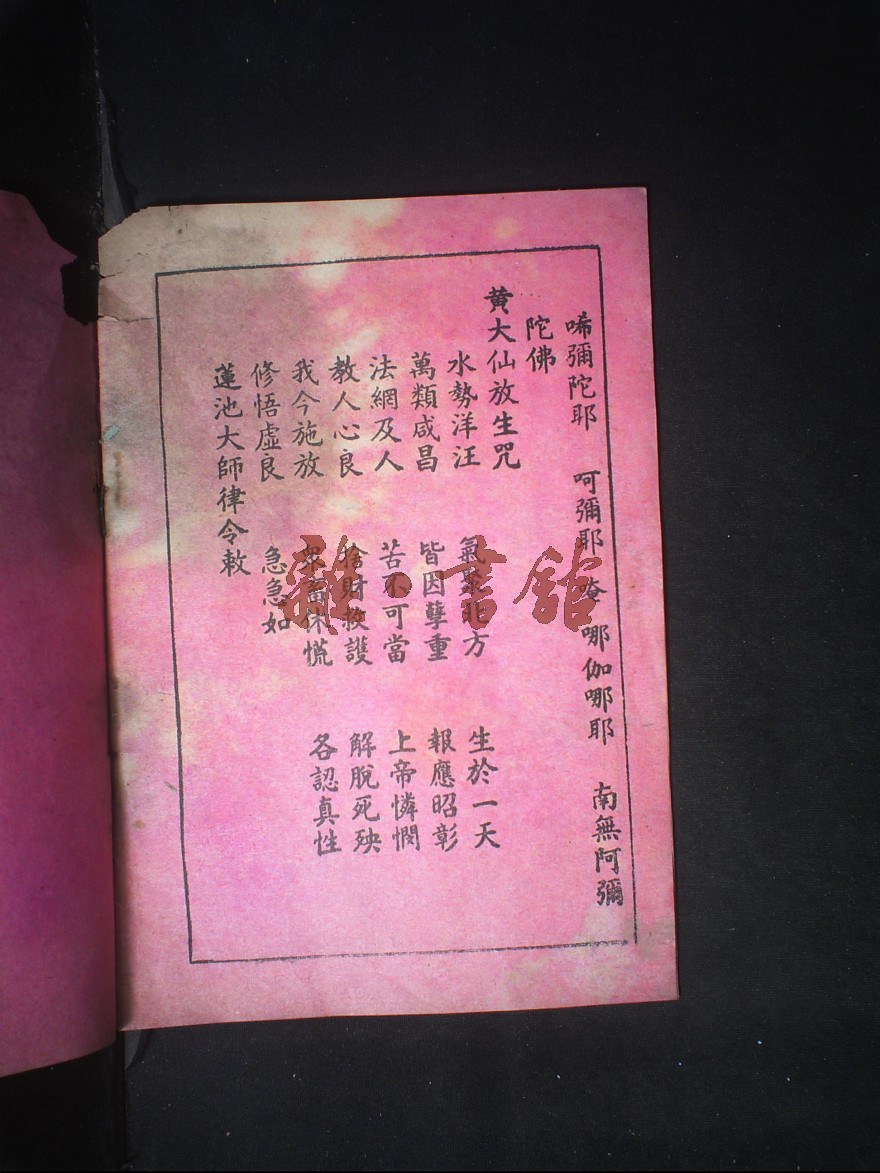 唏彌陀耶　呵彌耶　唵　哪伽哪耶　南無阿彌
陀佛
黃大仙放生咒
水勢洋汪　氣聚北方　生於一天
萬類咸昌　皆因孽重　報應昭彰
法網及人　苦不可當　上帝憐憫
教人心良　捨財救護　解脫死殃
我今施放　眾畜休慌　各認真性
修悟虛良　急急如
蓮池大師律令敕
雜·書館